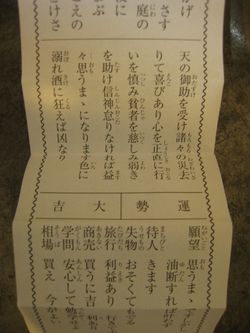 かげ
さす
庭の
天の御助を受け諸々の災去
りて喜びあり心を正直に行
いをつゝしみ貧者を慈しみ弱き
を助け信神怠りなければ益
々思うまゝになります色に
溺れ酒に狂えば凶なり
運勢
大吉
願望 思うまゝ
油断すれば
待人 きます
失物 おそくで
旅行 利益あり
商売 買うに吉
学問 安心して勉学せ
相場 買え 今がよい